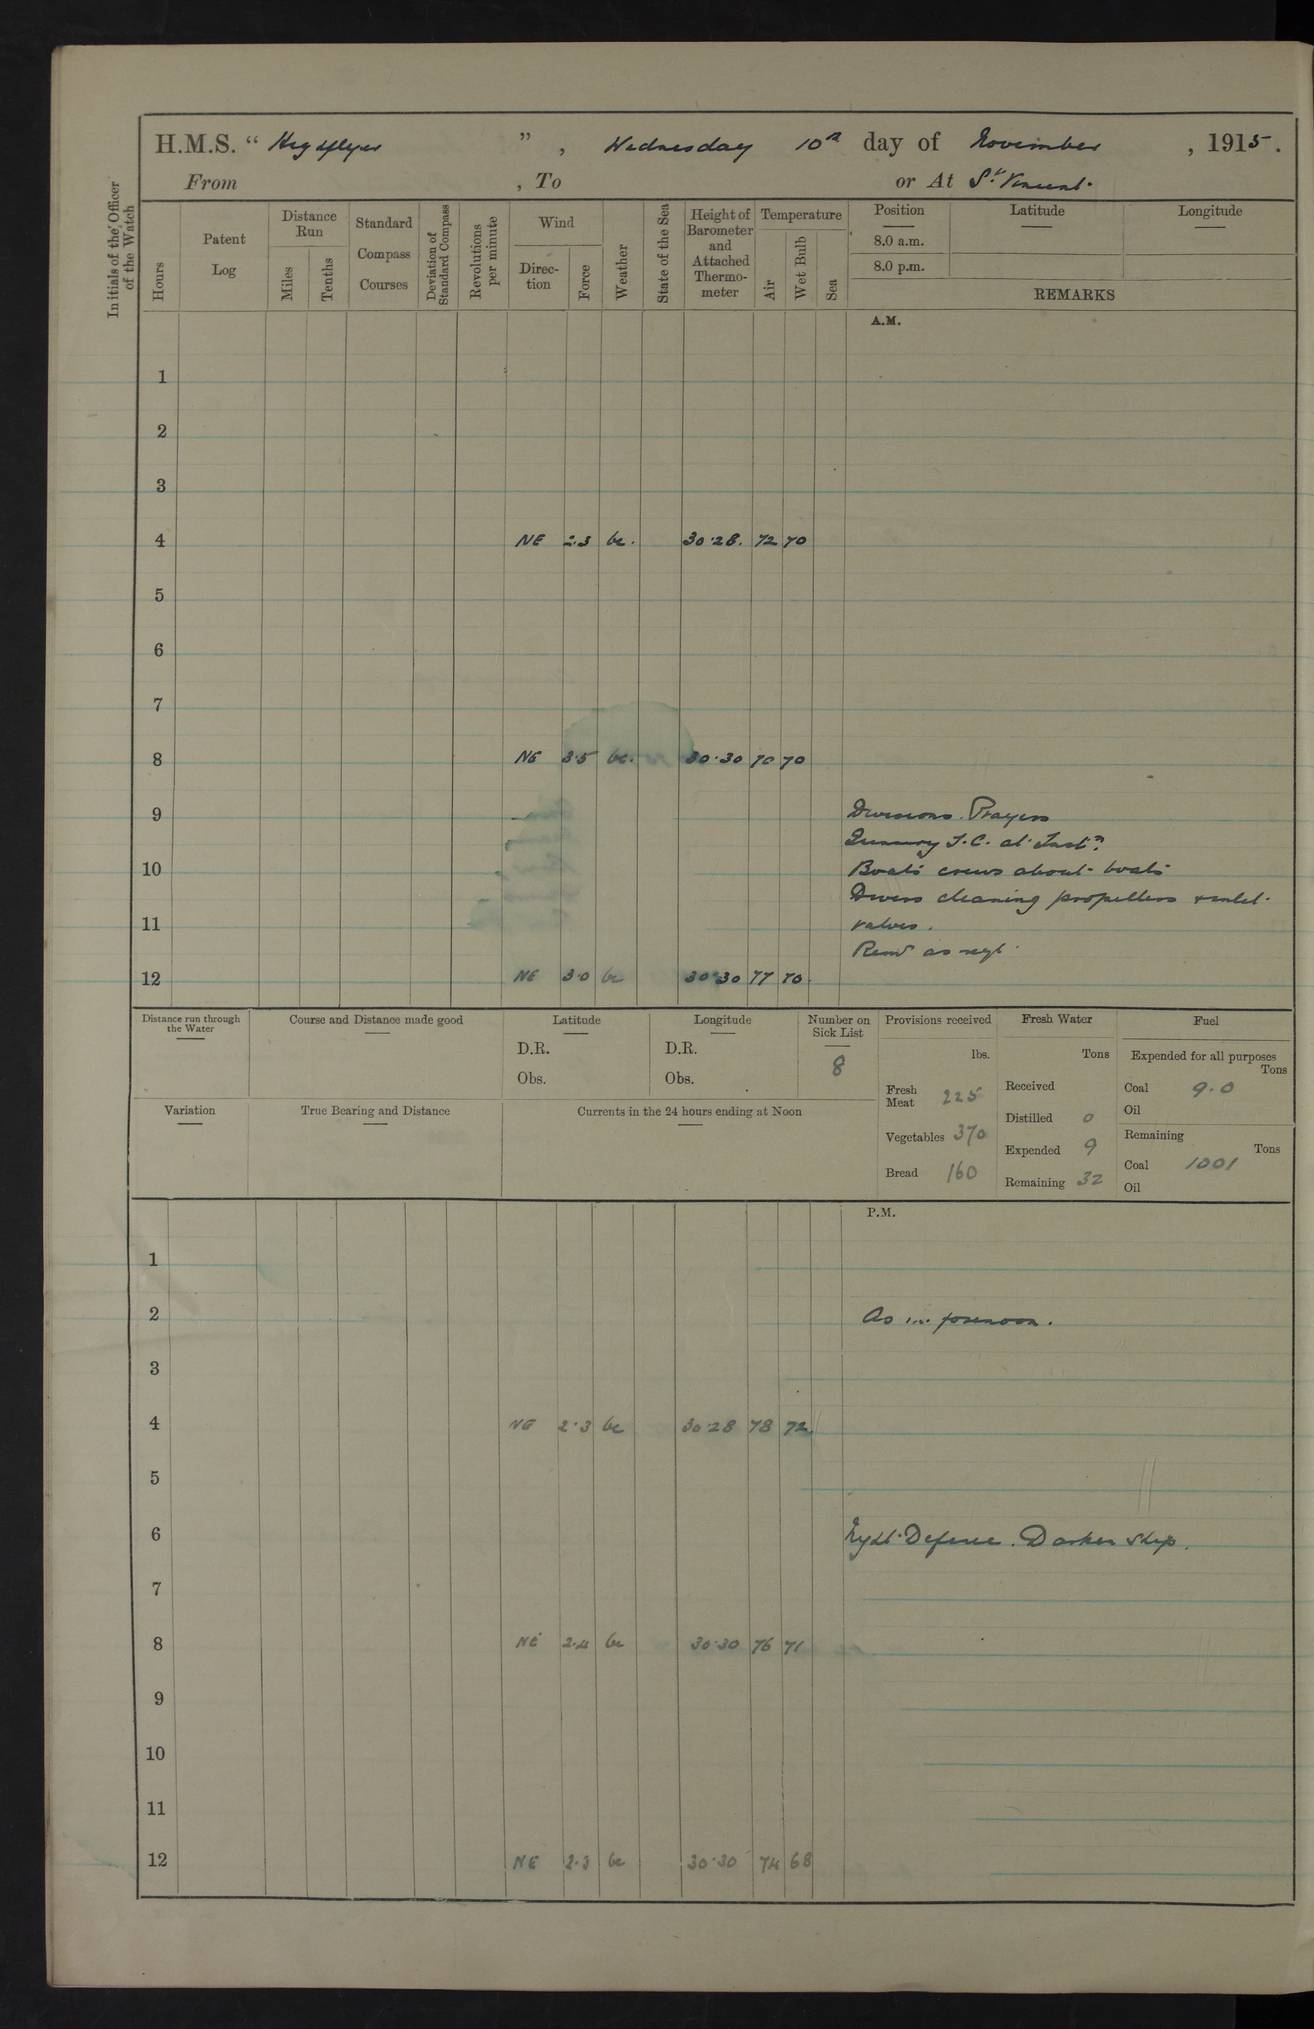 H.M.S. “ Highflyer ” , Wednesday 10th day of November , 1915.
From , To or At St Vincent.
Initials of the Officer of the Watch
Hours
Patent Log
Distance Run
Miles
Tenths
Standard Compass Courses
Deviation of Standard Compass
Revolutions per minute
Wind
Direc-tion
Force
Weather
State of the Sea
Height of Barometer and Attached Thermo-meter
Temperature
Air
Wet Bulb
Sea
Position
Latitude
Longitude
8.0 a.m.
8.0 p.m.
REMARKS
A.M.
1
2
3
4 NE 2.3 bc. 30.28. 72 70
5
6
7
8 NE 3.5 bc. 30.30 70 70
9 Divisions. Prayers
T.C. at Instn.
10 Boats crews about boats
Divers cleaning propellers & inlet
11 valves.
Remr as reqd
12 NE 3.0 bc 30.30 77 70.
Distance run through the Water
Course and Distance made good
Latitude
D.R.
Obs.
Longitude
D.R.
Obs.
Number on Sick List
8
Provisions received
lbs.
Fresh Meat 225
Vegetables 370
Bread 160
Fresh Water
Tons
Received
Distilled 0
Expended 9
Remaining 32
Fuel
Expended for all purposes
Tons
Coal 9.0
Oil
Remaining
Tons
Coal 1001
Oil
Variation
True Bearing and Distance
Currents in the 24 hours ending at Noon
P.M.
1
2 As in forenoon.
3
4 NE 2.3 bc 30.28 78 72
5
6 Night Defence. Darken Ship.
7
8 NE 2.4 bc 30.30 76 71
9
10
11
12 NE 2.3 bc 30.30 74 68